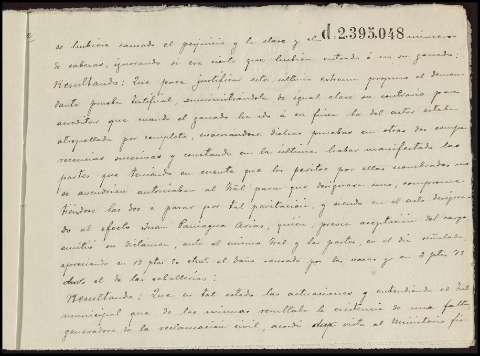 d 2.395.048
se hubiese causado el perjuicio y la clase y el número
de cabezas, ignorando si era cierto que hubiese entrado ó no su ganado:
Resultando: Que para justificar este último extremo propuso el deman-
dante prueba testifical, suministrándola de igual clase su contrario para
acreditar que cuando el ganado ha ido á su finca la del actor estaba
atropellada por completo, evacuándose dichas pruebas en otras dos compa-
recencias sucesivas y constando en la última haber manifestado las
partes que teniendo en cuenta que los peritos por ellas nombrados no
se avendrían autorizaban al Tral para que designara uno, comprome-
tiéndose las dos á pasar por tal peritación, y siendo en el acto designa-
do al efecto Juan Paniagua Arias, quien previa aceptación del cargo
emitió su dictamen, ante el mismo Tral y las partes, en el día señalado,
apreciando en 13 ptas el daño causado por las vacas y en 2 ptas
el de las caballerías:
Resultando: Que en tal estado las actuaciones y entendiendo el Tral
municipal que de las mismas resultaba la existencia de una falta
generadora de la reclamación civil, acordó dar vista al Ministerio fis-